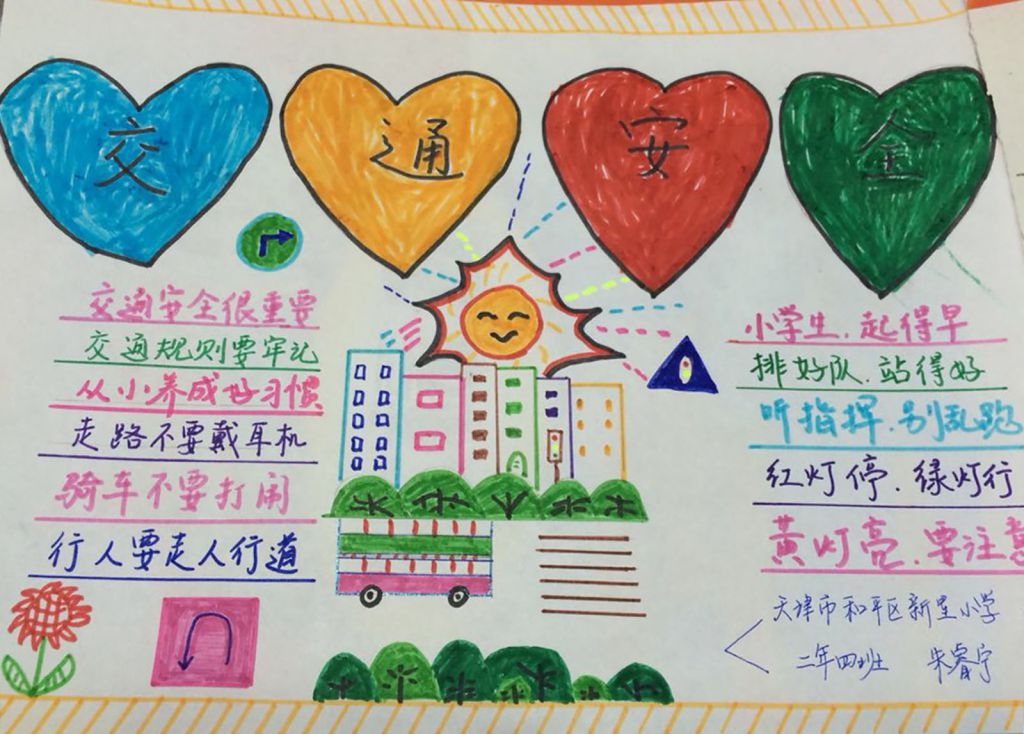 交通安全
交通安全很重要
交通规则要牢记
从小养成好习惯
走路不要戴耳机
骑车不要打闹
行人要走人行道
小学生,起得早
排好队,站得好
听指挥,别乱跑
红灯停,绿灯行
黄灯亮,要注意
天津市和平区新星小学
二年四班 朱睿宁